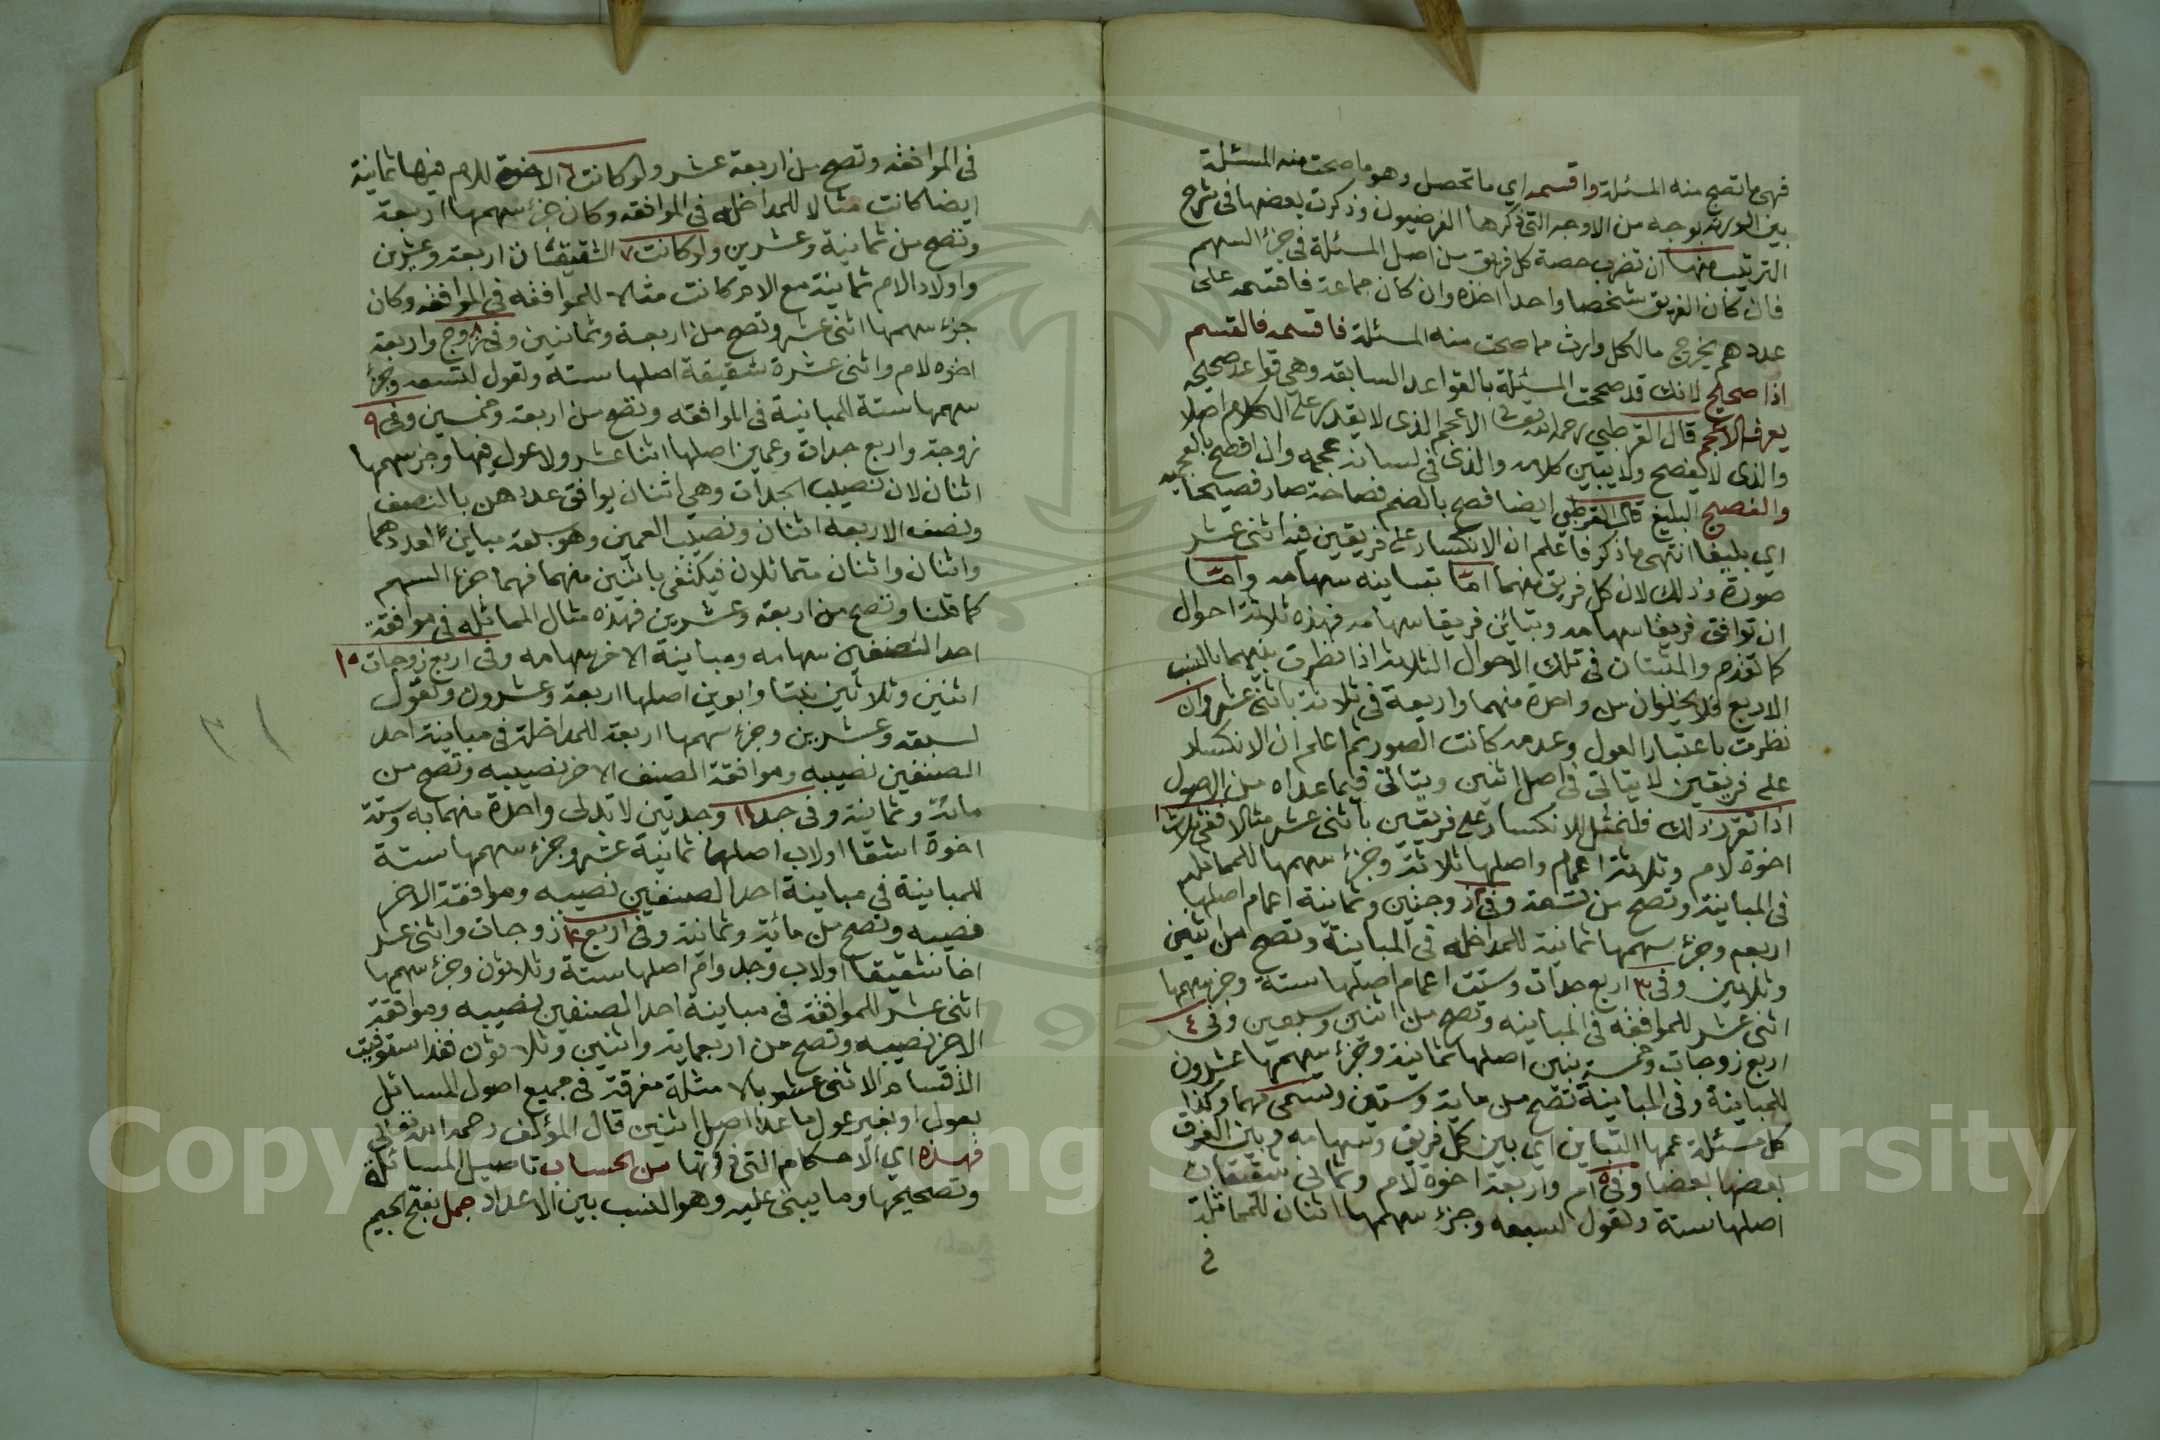 فهي ما تصح منه المسئلة واقسمه اي ما تحصل وهو ما صحت منه المسئلة
بين الورثة بوجه من الاوجه التي ذكرها الفرضيون وذكرت بعضها في شرح
الترتيب منها ان تضرب حصة كل فريق من اصل المسئلة في جزء السهم
فان كان الفريق شخصا واحدا اخذه وان كان جماعة فاقسمه على
عددهم يخرج ما لكل وارث مما صحت منه المسئلة فاقسمه فالقسم
اذا صحيح لانك قد صححت المسئلة بالقواعد السابقة وهي قواعد صحيحة
يعرفه الاعجم قال القرطبي رحمه الله تعالى الاعجم الذي لا يقدر على الكلام اصلا
والذي لا يفصح ولا يبين كلامه والذي في لسانه عجمة وان افصح بالعجمية
والفصيح البليغ قال القرطبي ايضا فصح بالضم فصاحة صار فصيحا
اي بليغا انتهى ما ذكر فاعلم ان الانكسار على فريقين فيه اثنى عشر
صورة وذلك لان كل فريق منهما اما تباينه سهامه واما
ان توافق فريقا سهامه وتباين فريقا سهامه فهذه ثلاثة احوال
كما تقدم والمثبتان في تلك الاحوال الثلاثة اذا نظرت بينهما بالنسب
الاربع فلا يخلوان من واحدة منهما واربعة في ثلاثة باثنى عشر وان
نظرت باعتبار العول وعدمه كانت الصور ثم اعلم ان الانكسار
على فريقين لا يتاتى في اصل اثنين ويتاتى فيما عداه من الاصول
اذا تقرر ذلك فلنمثل للانكسار على فريقين باثنى عشر مثالا ففي ثلاثة ١
اخوة لام وثلاثة اعمام واصلها ثلاثة وجزء سهمها للمماثلة
في المباينة وتصح من تسعة وفي ٢ زوجتين وثمانية اعمام اصلها
اربعة وجزء سهمها ثمانية للمداخلة في المباينة وتصح من اثنين
وثلاثين وفي ٣ اربع جدات وستت اعمام اصلها ستة وجزء سهمها
اثنى عشر للموافقة في المباينة وتصح من اثنين وسبعين وفي ٤
اربع زوجات وخمسة بنين اصلها ثمانية وجزء سهمها عشرون
للمباينة وفي المباينة تصح من ماية وستين وتسمى صما وكذا
كل مسئلة عمها التباين اي بين كل فريق وسهامه وبين الفرق
بعضها بعضا وفي ٥ ام واربعة اخوة لام وثماني شقيقات
اصلها ستة وتعول لسبعة وجزء سهمها اثنان للمماثلة
في
في الموافقة وتصح من اربعة عشر ولو كانت ٦ الاخوة للام فيها ثمانية
ايضا كانت مثالا للمداخلة في الموافقة وكان جزء سهمها اربعة
وتصح من ثمانية وعشرين ولو كانت ٧ الشقيقتان اربعة وعشرين
واولاد الام ثمانية مع الام كانت مثالا للموافقة في الموافقة وكان
جزء سهمها اثنى عشر وتصح من اربعة وثمانين وفي ٨ زوج واربعة
اخوة لام واثنى عشرة شقيقة اصلها ستة وتعول لتسعة وجزء
سهمها ستة للمباينة في الموافقة وتصح من اربعة وخمسين وفي ٩
زوجة واربع جدات وعمين اصلها اثنا عشر ولا عول فيها وجزء سهمها
اثنان لان نصيب الجدات وهي اثنان يوافق عددهن بالنصف
ونصف الاربعة اثنان ونصيب العمين وهو سبعة مباين لعددهما
واثنان واثنان متماثلان فيكتفى باثنين منهما فهما جزء السهم
كما قلنا وتصح من اربعة وعشرين فهذه مثال المماثلة في موافقة
احد الصنفين سهامه ومباينة الاخر سهامه وفي اربع زوجات ١٠
اثنين وثلاثين بنتا وابوين اصلها اربعة وعشرون وتعول
لسبعة وعشرين وجزء سهمها اربعة للمداخلة في مباينة احد
الصنفين نصيبه وموافقة الصنف الاخر نصيبه وتصح من
مائة وثمانية وفي جد ١١ وجدتين لا تدلى واحدة منهما به وستة
اخوة اشقا او لاب اصلها ثمانية عشر وجزء سهمها ستة
للمباينة في مباينة احد الصنفين نصيبه وموافقة الاخر
نصيبه وتصح من مائة وثمانية وفي اربع ١٢ زوجات واثنى عشر
اخا شقيقا او لاب وجد وام اصلها ستة وثلاثون وجزء سهمها
اثنى عشر للموافقة في مباينة احد الصنفين نصيبه وموافقة
الاخر نصيبه وتصح من اربعماية واثنين وثلاثون فقد استوفيت
الاقسام الاثنى عشر بالامثلة مفرقة في جميع اصول المسائل
بعول او بغير عول ما عدا اصل اثنين قال المؤلف رحمه الله تعالى
فهذه اي الاحكام التي ذكرتها من الحساب تاصيل المسائل
وتصحيحها وما يبنى عليه وهو النسب بين الاعداد جمل بفتح الجيم
Copyright © King Saud University
195